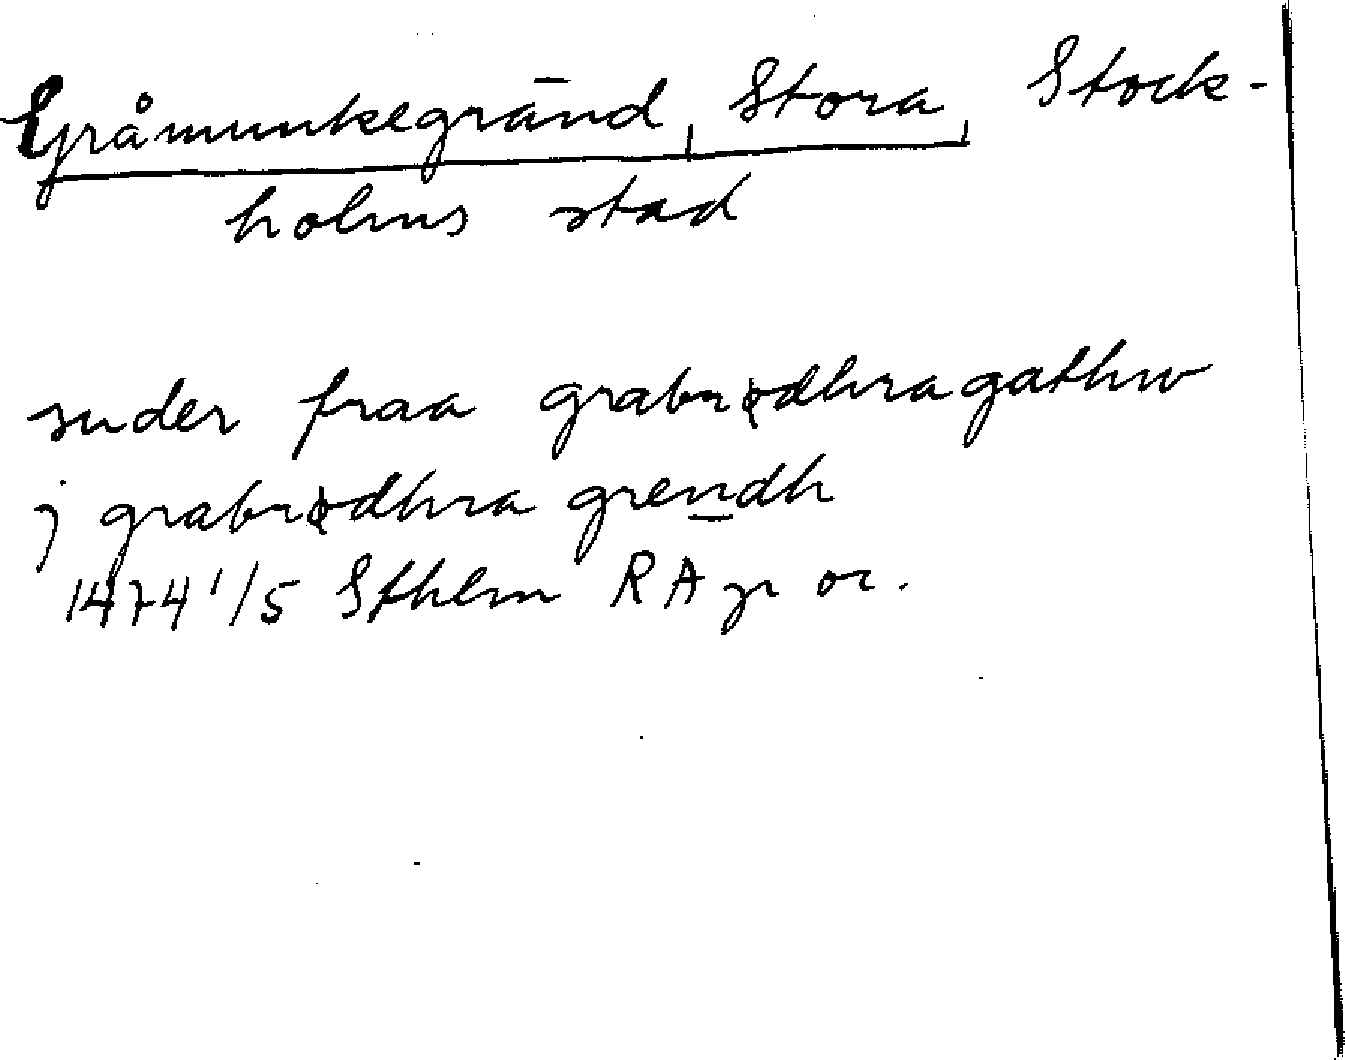 Gråmunkegränd, Stora, Stock-
holms stad
suder fraa grabrødhragathw
j grabrødhra grendh
1474 1/5 Sthlm RAp or.